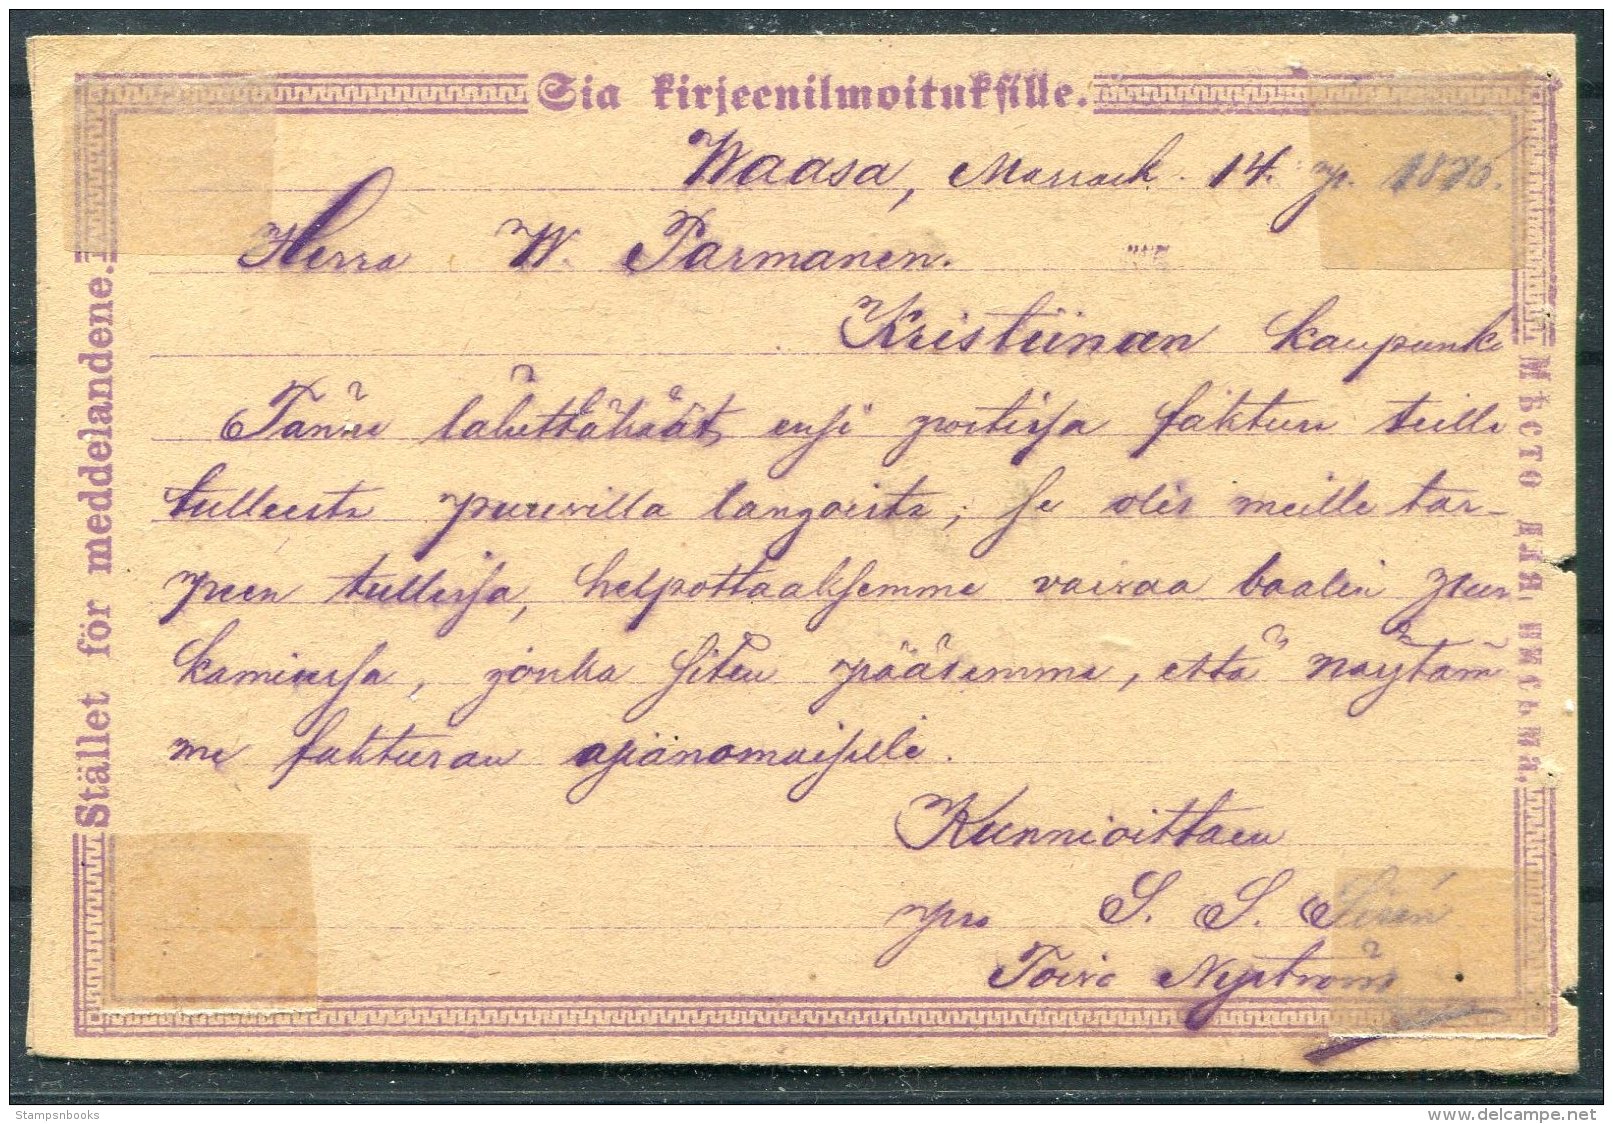 Sia kirjeenilmoituksille.
Stället för meddelandene.
Мѣсто для письма.
Waasa, Marrask. 14. p. 1876.
Herra W. Parmanen.
Kristiinan kaupunki
Tänne lähettäkäät ensi postissa faktura teille
tulleesta puuvilla langoista, se olis meille tar-
peen tullissa, helpottaaksemme vaivaa baalin pun
kamisessa, jonka siten pääsemme, että näytäm
me fakturan asianomaisille.
Kunnioittaen
pro S. S. Sirén
Toivo Nyström
Stampsnbooks
www.delcampe.net